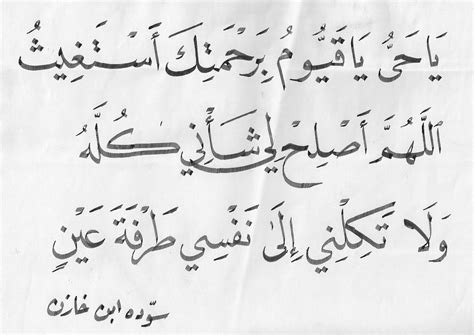 يَا حَيُّ يَا قَيُّومُ بِرَحْمَتِكَ أَسْتَغِيثُ
اللَّهُمَّ أَصْلِحْ لِي شَأْنِي كُلَّهُ
وَلَا تَكِلْنِي إِلَى نَفْسِي طَرْفَةَ عَيْنٍ
سوّده ابن خازن